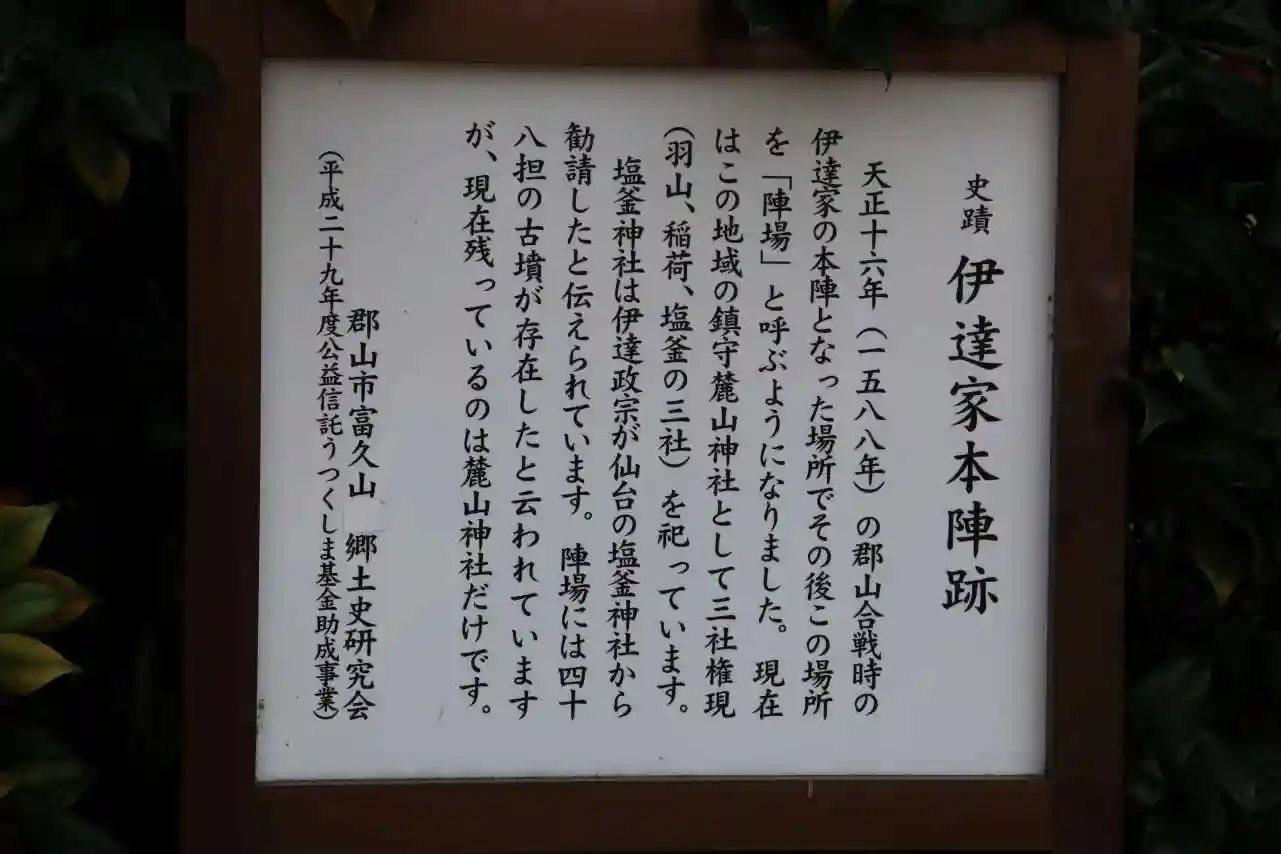 史蹟 伊達家本陣跡
天正十六年（一五八八年）の郡山合戦時の
伊達家の本陣となった場所でその後この場所
を「陣場」と呼ぶようになりました。現在
はこの地域の鎮守麓山神社として三社権現
（羽山、稲荷、塩釜の三社）を祀っています。
塩釜神社は伊達政宗が仙台の塩釜神社から
勧請したと伝えられています。陣場には四十
八担の古墳が存在したと云われています
が、現在残っているのは麓山神社だけです。
郡山市富久山 郷土史研究会
（平成二十九年度公益信託うつくしま基金助成事業）